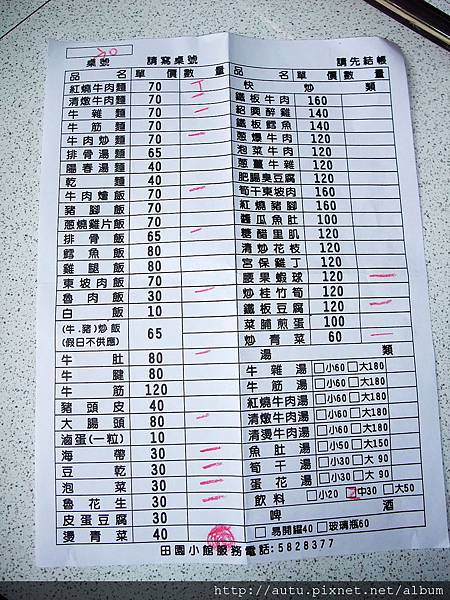 20
桌號 請寫桌號 請先結帳
品名 單價 數量
紅燒牛肉麵 70
清燉牛肉麵 70
牛雜麵 70
牛筋麵 70
牛肉炒麵 70
排骨湯麵 65
陽春湯麵 40
乾麵 40
牛肉燴飯 70
豬腳飯 70
蔥燒雞片飯 70
排骨飯 65
鱈魚飯 80
雞腿飯 80
東坡肉飯 70
魯肉飯 30
白飯 10
(牛.豬)炒飯 65
(假日不供應)
牛肚 80
牛腱 80
牛筋 120
豬頭皮 40
大腸頭 80
滷蛋(一粒) 10
海帶 30
豆乾 30
泡菜 30
魯花生 30
皮蛋豆腐 30
燙青菜 40
品名 單價 數量
快炒類
鐵板牛肉 160
紹興醉雞 140
鐵板鱈魚 140
蔥爆牛肉 120
泡菜牛肉 120
蔥薑牛雜 120
肥腸臭豆腐 120
筍干東坡肉 160
紅燒豬腳 160
醬瓜魚肚 100
糖醋里肌 120
清炒花枝 120
宮保雞丁 120
腰果蝦球 120
炒桂竹筍 120
鐵板豆腐 120
菜脯煎蛋 100
炒青菜 60
湯類
牛雜湯 □小60 □大180
牛筋湯 □小60 □大180
紅燒牛肉湯 □小60 □大180
清燉牛肉湯 □小60 □大180
清燙牛肉湯 □小60 □大180
魚肚湯 □小50 □大150
筍干湯 □小30 □大 90
蛋花湯 □小30 □大 90
飲料 □小20 □中30 □大50
啤酒
□易開罐40 □玻璃瓶60
田園小館服務電話:5828377
http://autu.pixnet.net/album